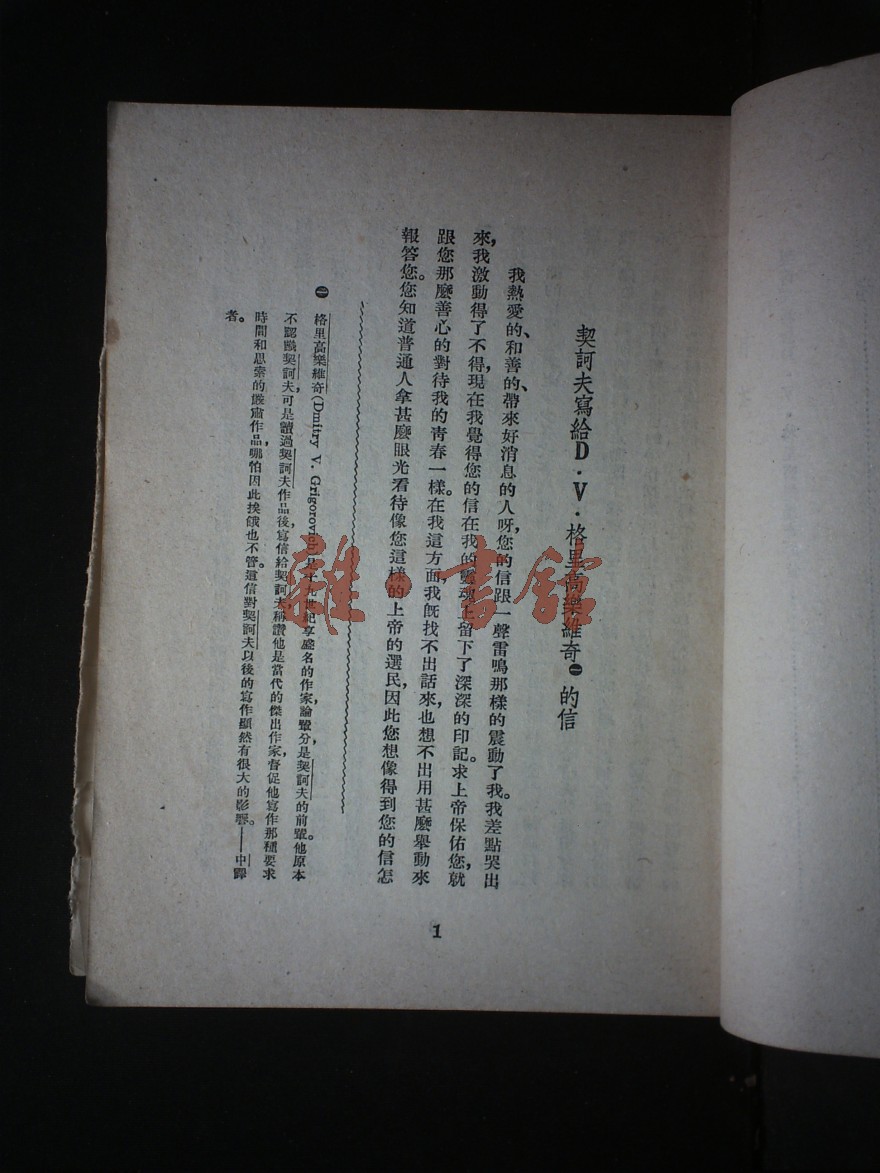 契訶夫寫給D·V·格里高樂維奇㊀的信
我熱愛的、和善的、帶來好消息的人呀，您的信跟一聲雷鳴那樣的震動了我。我差點哭出
來，我激動得了不得，現在我覺得您的信在我的靈魂上留下了深深的印記。求上帝保佑您，就
跟您那麼善心的對待我的青春一樣。在我這方面，我旣找不出話來，也想不出用甚麼舉動來
報答您。您知道普通人拿甚麼眼光看待像您這樣的上帝的選民，因此您想像得到您的信怎
㊀ 格里高樂維奇(Dmitry V. Grigorovich)是十九世紀享盛名的作家，論輩分是契訶夫的前輩。他原本
不認識契訶夫，可是讀過契訶夫作品後，寫信給契訶夫，稱讚他是當代的傑出作家，督促他寫作那種要求
時間和思索的嚴肅作品，哪怕因此挨餓也不管。這信對契訶夫以後的寫作顯然有很大的影響。——中譯
者。
1
雜·書館